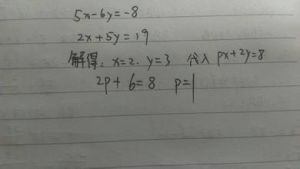 5x-6y=-8
2x+5y=19
解得: x=2. y=3 代入 px+2y=8
2p+6=8 p=1